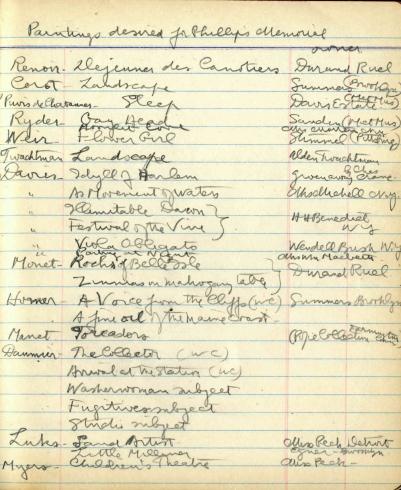 Paintings desired for Phillips Memorial
owner
Renoir - Dejeuner des Canotiers Durand Ruel
Corot - Landscape Summers (Brooklyn)
Puvis de Chavannes - Sleep Davis Estate (Met Mus)
Ryder Gay Head Sanden (Met Mus)
Weir - Flower Girl Stimmel (Pittsburg)
Twachtman Landscape Alden Twachtman
Davies - Idyll of Harlem
" As Movement of Waters Mitchell N.Y.
" Illimitable Dawn }
" Festival of the Vine } H H Benedict N Y
" Viola Obligato Wendell Brush N.Y.
Monet - Rocks of Belle Isle
Zinnias on mahogany table } Durand Ruel
Homer - A Voice from the Cliffs (WC) Summers Brooklyn
A fine oil of the Maine Coast
Manet Toreadors Pope Collection Farmington
Daumier - The Collector (WC)
Arrival at the Station (WC)
Washerwoman subject
Fugitives subject
Studio subject
Luks - Sand Artist Miss Peck Detroit
Little Milliner
Myers - Children's Theatre Miss Peck -